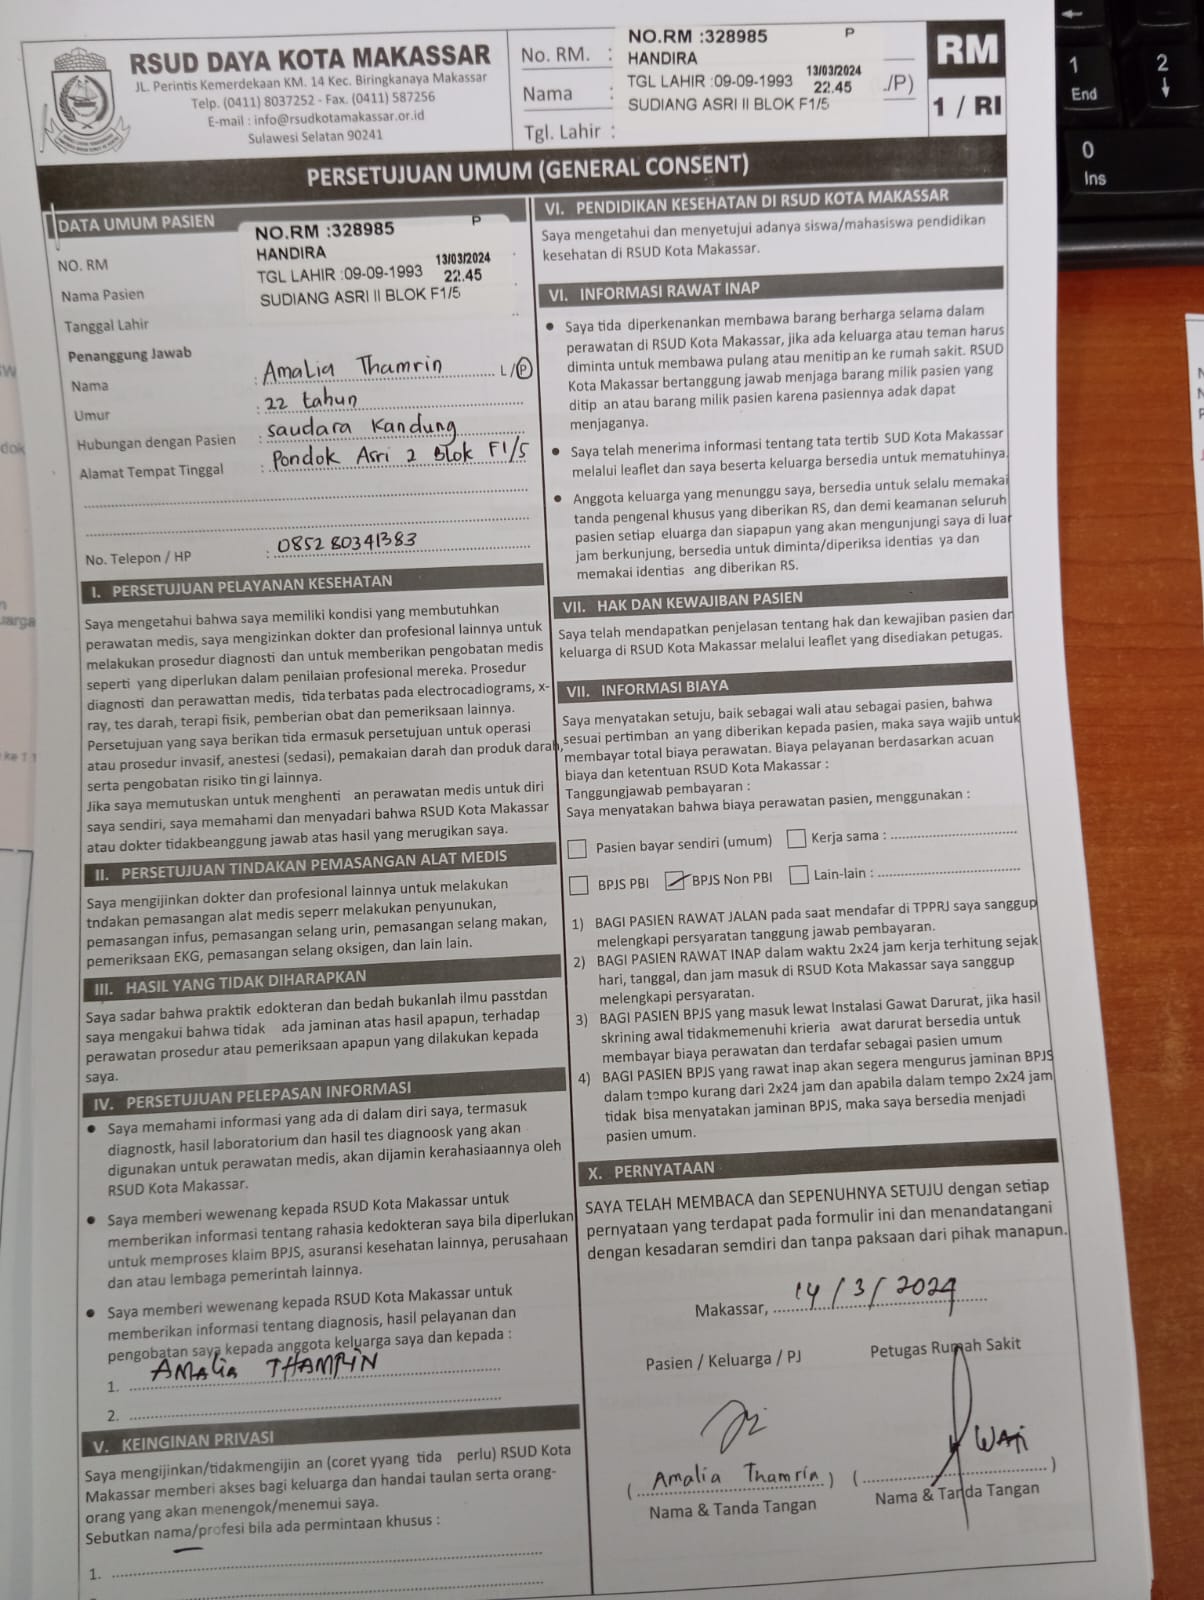 RSUD DAYA KOTA MAKASSAR
JL. Perintis Kemerdekaan KM. 14 Kec. Biringkanaya Makassar
Telp. (0411) 8037252 - Fax. (0411) 587256
E-mail : info@rsudkotamakassar.or.id
Sulawesi Selatan 90241
No. RM. :
Nama :
Tgl. Lahir :
NO.RM :328985 P
HANDIRA
TGL LAHIR :09-09-1993 13/03/2024 22.45
SUDIANG ASRI II BLOK F1/5
./P)
RM
1 / RI
PERSETUJUAN UMUM (GENERAL CONSENT)
DATA UMUM PASIEN
NO.RM :328985 P
HANDIRA
TGL LAHIR :09-09-1993 13/03/2024 22.45
SUDIANG ASRI II BLOK F1/5
NO. RM
Nama Pasien
Tanggal Lahir
Penanggung Jawab
Nama : Amalia Thamrin L/P
Umur : 22 tahun
Hubungan dengan Pasien : saudara Kandung
Alamat Tempat Tinggal : Pondok Asri 2 Blok F1/5
No. Telepon / HP : 085280341383
I. PERSETUJUAN PELAYANAN KESEHATAN
Saya mengetahui bahwa saya memiliki kondisi yang membutuhkan
perawatan medis, saya mengizinkan dokter dan profesional lainnya untuk
melakukan prosedur diagnosti dan untuk memberikan pengobatan medis
seperti yang diperlukan dalam penilaian profesional mereka. Prosedur
diagnosti dan perawattan medis, tida terbatas pada electrocadiograms, x-
ray, tes darah, terapi fisik, pemberian obat dan pemeriksaan lainnya.
Persetujuan yang saya berikan tida ermasuk persetujuan untuk operasi
atau prosedur invasif, anestesi (sedasi), pemakaian darah dan produk darah,
serta pengobatan risiko tin gi lainnya.
Jika saya memutuskan untuk menghenti an perawatan medis untuk diri
saya sendiri, saya memahami dan menyadari bahwa RSUD Kota Makassar
atau dokter tidakbeanggung jawab atas hasil yang merugikan saya.
II. PERSETUJUAN TINDAKAN PEMASANGAN ALAT MEDIS
Saya mengijinkan dokter dan profesional lainnya untuk melakukan
tndakan pemasangan alat medis seperr melakukan penyunukan,
pemasangan infus, pemasangan selang urin, pemasangan selang makan,
pemeriksaan EKG, pemasangan selang oksigen, dan lain lain.
III. HASIL YANG TIDAK DIHARAPKAN
Saya sadar bahwa praktik edokteran dan bedah bukanlah ilmu passtdan
saya mengakui bahwa tidak ada jaminan atas hasil apapun, terhadap
perawatan prosedur atau pemeriksaan apapun yang dilakukan kepada
saya.
IV. PERSETUJUAN PELEPASAN INFORMASI
● Saya memahami informasi yang ada di dalam diri saya, termasuk
diagnostk, hasil laboratorium dan hasil tes diagnoosk yang akan
digunakan untuk perawatan medis, akan dijamin kerahasiaannya oleh
RSUD Kota Makassar.
● Saya memberi wewenang kepada RSUD Kota Makassar untuk
memberikan informasi tentang rahasia kedokteran saya bila diperlukan
untuk memproses klaim BPJS, asuransi kesehatan lainnya, perusahaan
dan atau lembaga pemerintah lainnya.
● Saya memberi wewenang kepada RSUD Kota Makassar untuk
memberikan informasi tentang diagnosis, hasil pelayanan dan
pengobatan saya kepada anggota keluarga saya dan kepada :
1. AMALia THAMRIN
2.
V. KEINGINAN PRIVASI
Saya mengijinkan/tidakmengijin an (coret yyang tida perlu) RSUD Kota
Makassar memberi akses bagi keluarga dan handai taulan serta orang-
orang yang akan menengok/menemui saya.
Sebutkan nama/profesi bila ada permintaan khusus :
1.
VI. PENDIDIKAN KESEHATAN DI RSUD KOTA MAKASSAR
Saya mengetahui dan menyetujui adanya siswa/mahasiswa pendidikan
kesehatan di RSUD Kota Makassar.
VI. INFORMASI RAWAT INAP
● Saya tida diperkenankan membawa barang berharga selama dalam
perawatan di RSUD Kota Makassar, jika ada keluarga atau teman harus
diminta untuk membawa pulang atau menitip an ke rumah sakit. RSUD
Kota Makassar bertanggung jawab menjaga barang milik pasien yang
ditip an atau barang milik pasien karena pasiennya adak dapat
menjaganya.
● Saya telah menerima informasi tentang tata tertib SUD Kota Makassar
melalui leaflet dan saya beserta keluarga bersedia untuk mematuhinya.
● Anggota keluarga yang menunggu saya, bersedia untuk selalu memakai
tanda pengenal khusus yang diberikan RS, dan demi keamanan seluruh
pasien setiap eluarga dan siapapun yang akan mengunjungi saya di luar
jam berkunjung, bersedia untuk diminta/diperiksa identias ya dan
memakai identias ang diberikan RS.
VII. HAK DAN KEWAJIBAN PASIEN
Saya telah mendapatkan penjelasan tentang hak dan kewajiban pasien dan
keluarga di RSUD Kota Makassar melalui leaflet yang disediakan petugas.
VII. INFORMASI BIAYA
Saya menyatakan setuju, baik sebagai wali atau sebagai pasien, bahwa
sesuai pertimban an yang diberikan kepada pasien, maka saya wajib untuk
membayar total biaya perawatan. Biaya pelayanan berdasarkan acuan
biaya dan ketentuan RSUD Kota Makassar :
Tanggungjawab pembayaran :
Saya menyatakan bahwa biaya perawatan pasien, menggunakan :
Pasien bayar sendiri (umum) Kerja sama :
BPJS PBI BPJS Non PBI Lain-lain :
1) BAGI PASIEN RAWAT JALAN pada saat mendafar di TPPRJ saya sanggup
melengkapi persyaratan tanggung jawab pembayaran.
2) BAGI PASIEN RAWAT INAP dalam waktu 2x24 jam kerja terhitung sejak
hari, tanggal, dan jam masuk di RSUD Kota Makassar saya sanggup
melengkapi persyaratan.
3) BAGI PASIEN BPJS yang masuk lewat Instalasi Gawat Darurat, jika hasil
skrining awal tidakmemenuhi krieria awat darurat bersedia untuk
membayar biaya perawatan dan terdafar sebagai pasien umum
4) BAGI PASIEN BPJS yang rawat inap akan segera mengurus jaminan BPJS
dalam tempo kurang dari 2x24 jam dan apabila dalam tempo 2x24 jam
tidak bisa menyatakan jaminan BPJS, maka saya bersedia menjadi
pasien umum.
X. PERNYATAAN
SAYA TELAH MEMBACA dan SEPENUHNYA SETUJU dengan setiap
pernyataan yang terdapat pada formulir ini dan menandatangani
dengan kesadaran semdiri dan tanpa paksaan dari pihak manapun.
Makassar, 14 / 3 / 2024
Pasien / Keluarga / PJ Petugas Rumah Sakit
( Amalia Thamrin ) ( WATI )
Nama & Tanda Tangan Nama & Tanda Tangan
1
End
2
0
Ins